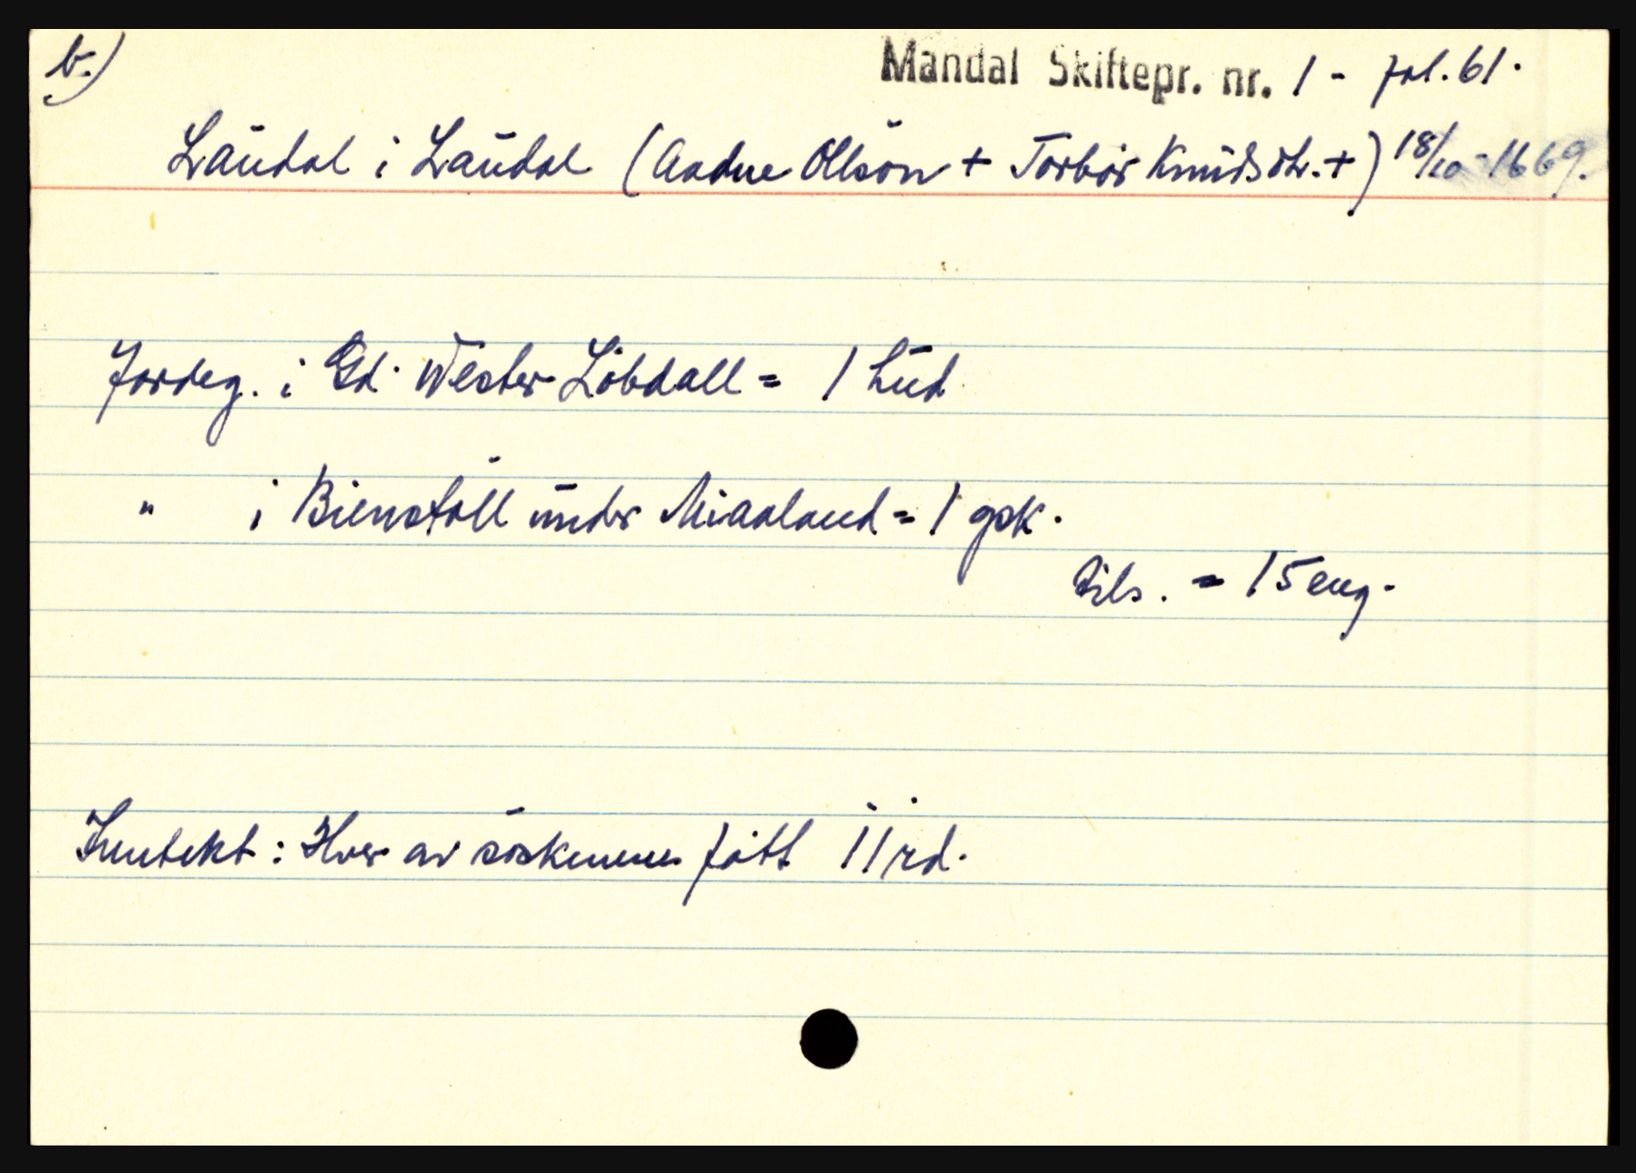 b.)
Mandal Skiftepr. nr. 1 - fol. 61.
Laudal i Laudal (Aadne Olson + Torbór Knudsdtr. +) 18/10-1669.
Jordeg. i Gd. Wester Löbdall = 1 hud
" i Bienstöll under Miaaland = 1 gsk.
Tils. = 15 eng.
Inntekt: Hver av söskenene fått 11 rd.